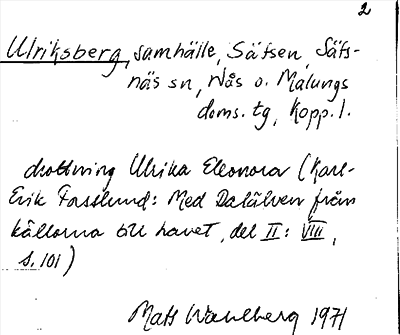 2
Ulriksberg, samhälle, Säfsen, Säfs-
näs sn, Nås o. Malungs
doms. tg, Kopp. l.
drottning Ulrika Eleonora (Karl-
Erik Forsslund: Med Dalälven från
källorna till havet, del II: VIII,
s. 101)
Mats Wahlberg 1971